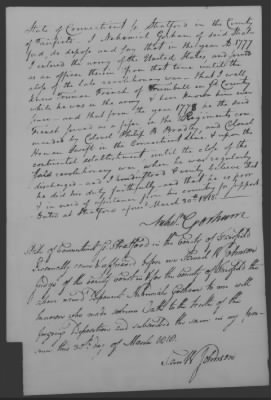 State of Connecticut ss Stratford in the County
of Fairfield I Nehemiah Gorham of said Strat-
ford do depose and say that in the year AD 1777
I entered the army of the United States and served
as an officer therein from that time until the
close of the late revolutionary war that I well
knew Truman French of Trumbull in sd County
while he was in the army & have known him ever
since and that from the year 1778 he the said
French served as a fifer in the Regiments com-
manded by Colonel Philip B Bradley and Colonel
Heman Swift in the Connecticut line & upon the
continental establishment until the close of the
said revolutionary war when he was regularly
discharged and I understood & verily believe that
he did his duty faithfully and that he is poor
& in need of assistance from his country for support
Dated at Stratford aforesd March 30th 1818.
Nehh. Gorham
State of Connecticut ss Stratford in the County of Fairfield
Personally came & appeared before me Samuel W Johnson
Judge of the County Court in & for the County of Fairfield the
above named deponent Nehemiah Gorham to me well
known who made solemn Oath to the truth of the
foregoing Deposition and subscribed the same in my pres-
ence this 30th day of March 1818.
Saml W Johnson